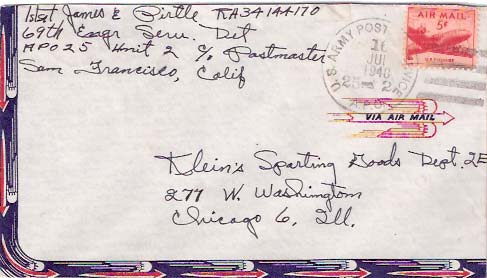 1st Sgt James E Pirtle RA34144170
69th Engr Serv. Det
APO 25 Unit 2 c/o Postmaster
San Francisco, Calif
U.S. ARMY POSTAL SERVICE
16
JUL
1948
25 2
A.P.O.
AIR MAIL
5¢
VIA AIR MAIL
Klein's Sporting Goods Dept. 2E
227 W. Washington
Chicago 6, Ill.